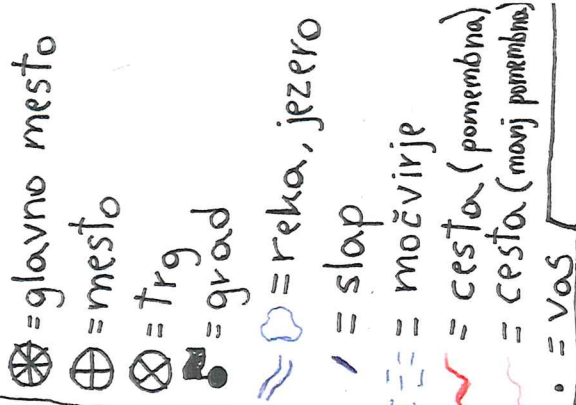 = glavno mesto
= mesto
= trg
= grad
= reka, jezero
= slap
= močvirje
= cesta (pomembna)
= cesta (manj pomembna)
= vas